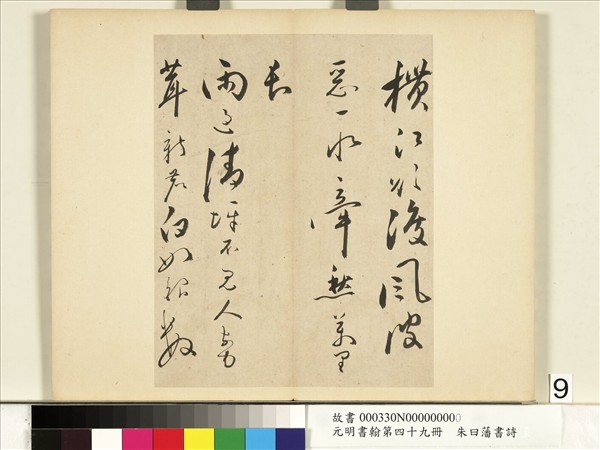 橫江欲渡風波
惡一水牽愁萬里
長
雨過清不見人
茸新白如數
9
故書 000330N000000000
元明書翰第四十九冊 朱曰藩書詩